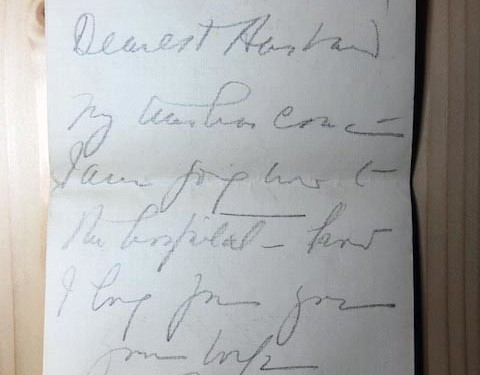 Dearest Husband
My time has come –
I am going now to
the hospital –
I long for you –
your wife